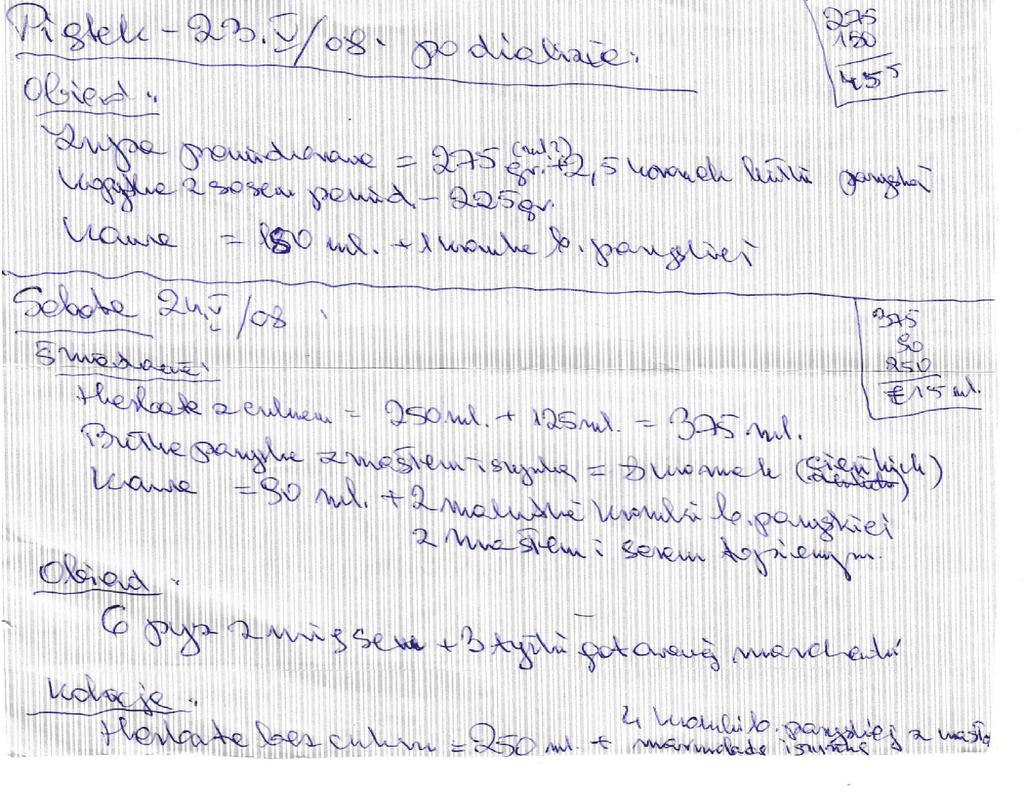 Piątek - 23.V/08. po dializie.
275
150
455
Obiad.
Zupa pomidorowa = 275 gr. (ml?) + 2,5 kromek bułki paryskiej
Kopytka z sosem pomid. - 225 gr.
Kawa = 180 ml. + 1 kromka b. paryskiej
Sobota 24.V/08.
375
90
250
715 ml.
Śniadanie:
Herbata z cukrem = 250 ml. + 125 ml. = 375 ml.
Bułka paryska z masłem i szynką = 3 kromek (cienkich)
Kawa = 90 ml. + 2 malutkie kromki b. paryskiej
z masłem i serem topionym.
Obiad.
6 pyz z mięsem + 3 łyżki gotowanej marchewki
Kolacja.
Herbata bez cukru = 250 ml. + 4 kromki b. paryskiej z masłem
marmoladą i szynką